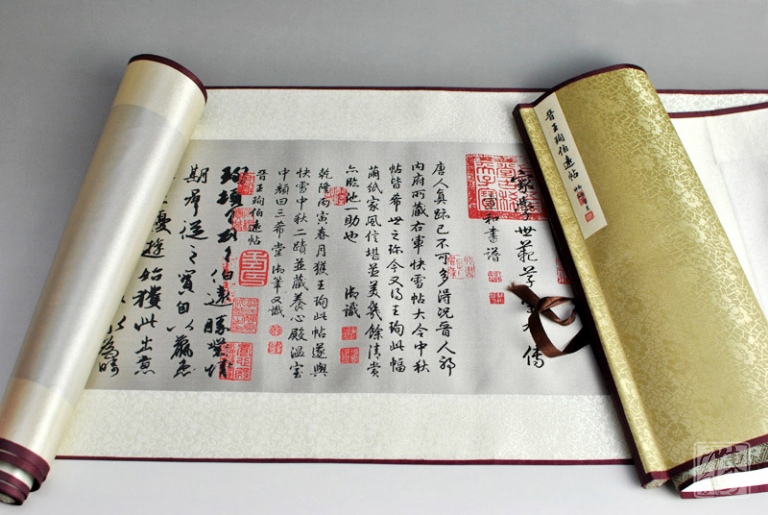 晉王珣伯遠帖
家學世範草
傳
和書譜
唐人真跡已不可多得況晉人耶
內府所藏右軍快雪帖大令中秋
帖皆希世之珍今又得王珣此幅
繭紙家風信堪並美幾餘清賞
亦臨池一助也 御識
乾隆丙寅春月獲王珣此帖遂與
快雪中秋二蹟並藏養心殿溫室
中顏曰三希堂 御筆又識
晉王珣伯遠帖
珣頓首伯遠勝業情
期群從之寶自以羸患
優遊始獲此出意
為疇